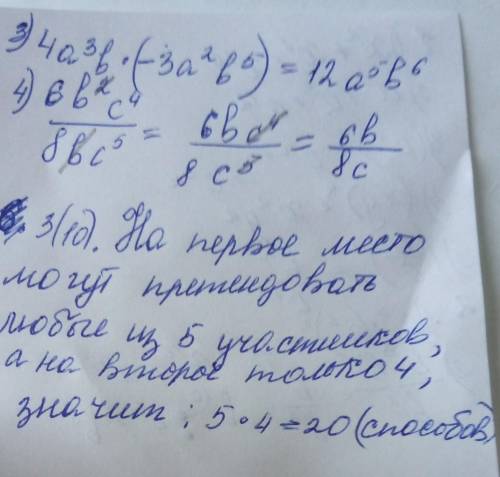 3) 4a³b · (-3a²b⁵) = 12a⁵b⁶
4) 6b²c⁴ / 8bc⁵ = 6bc⁴ / 8c⁵ = 6b / 8c
3(1б). На первое место
могут претендовать
любые из 5 участников,
а на второе только 4,
значит: 5 · 4 = 20 (способов)